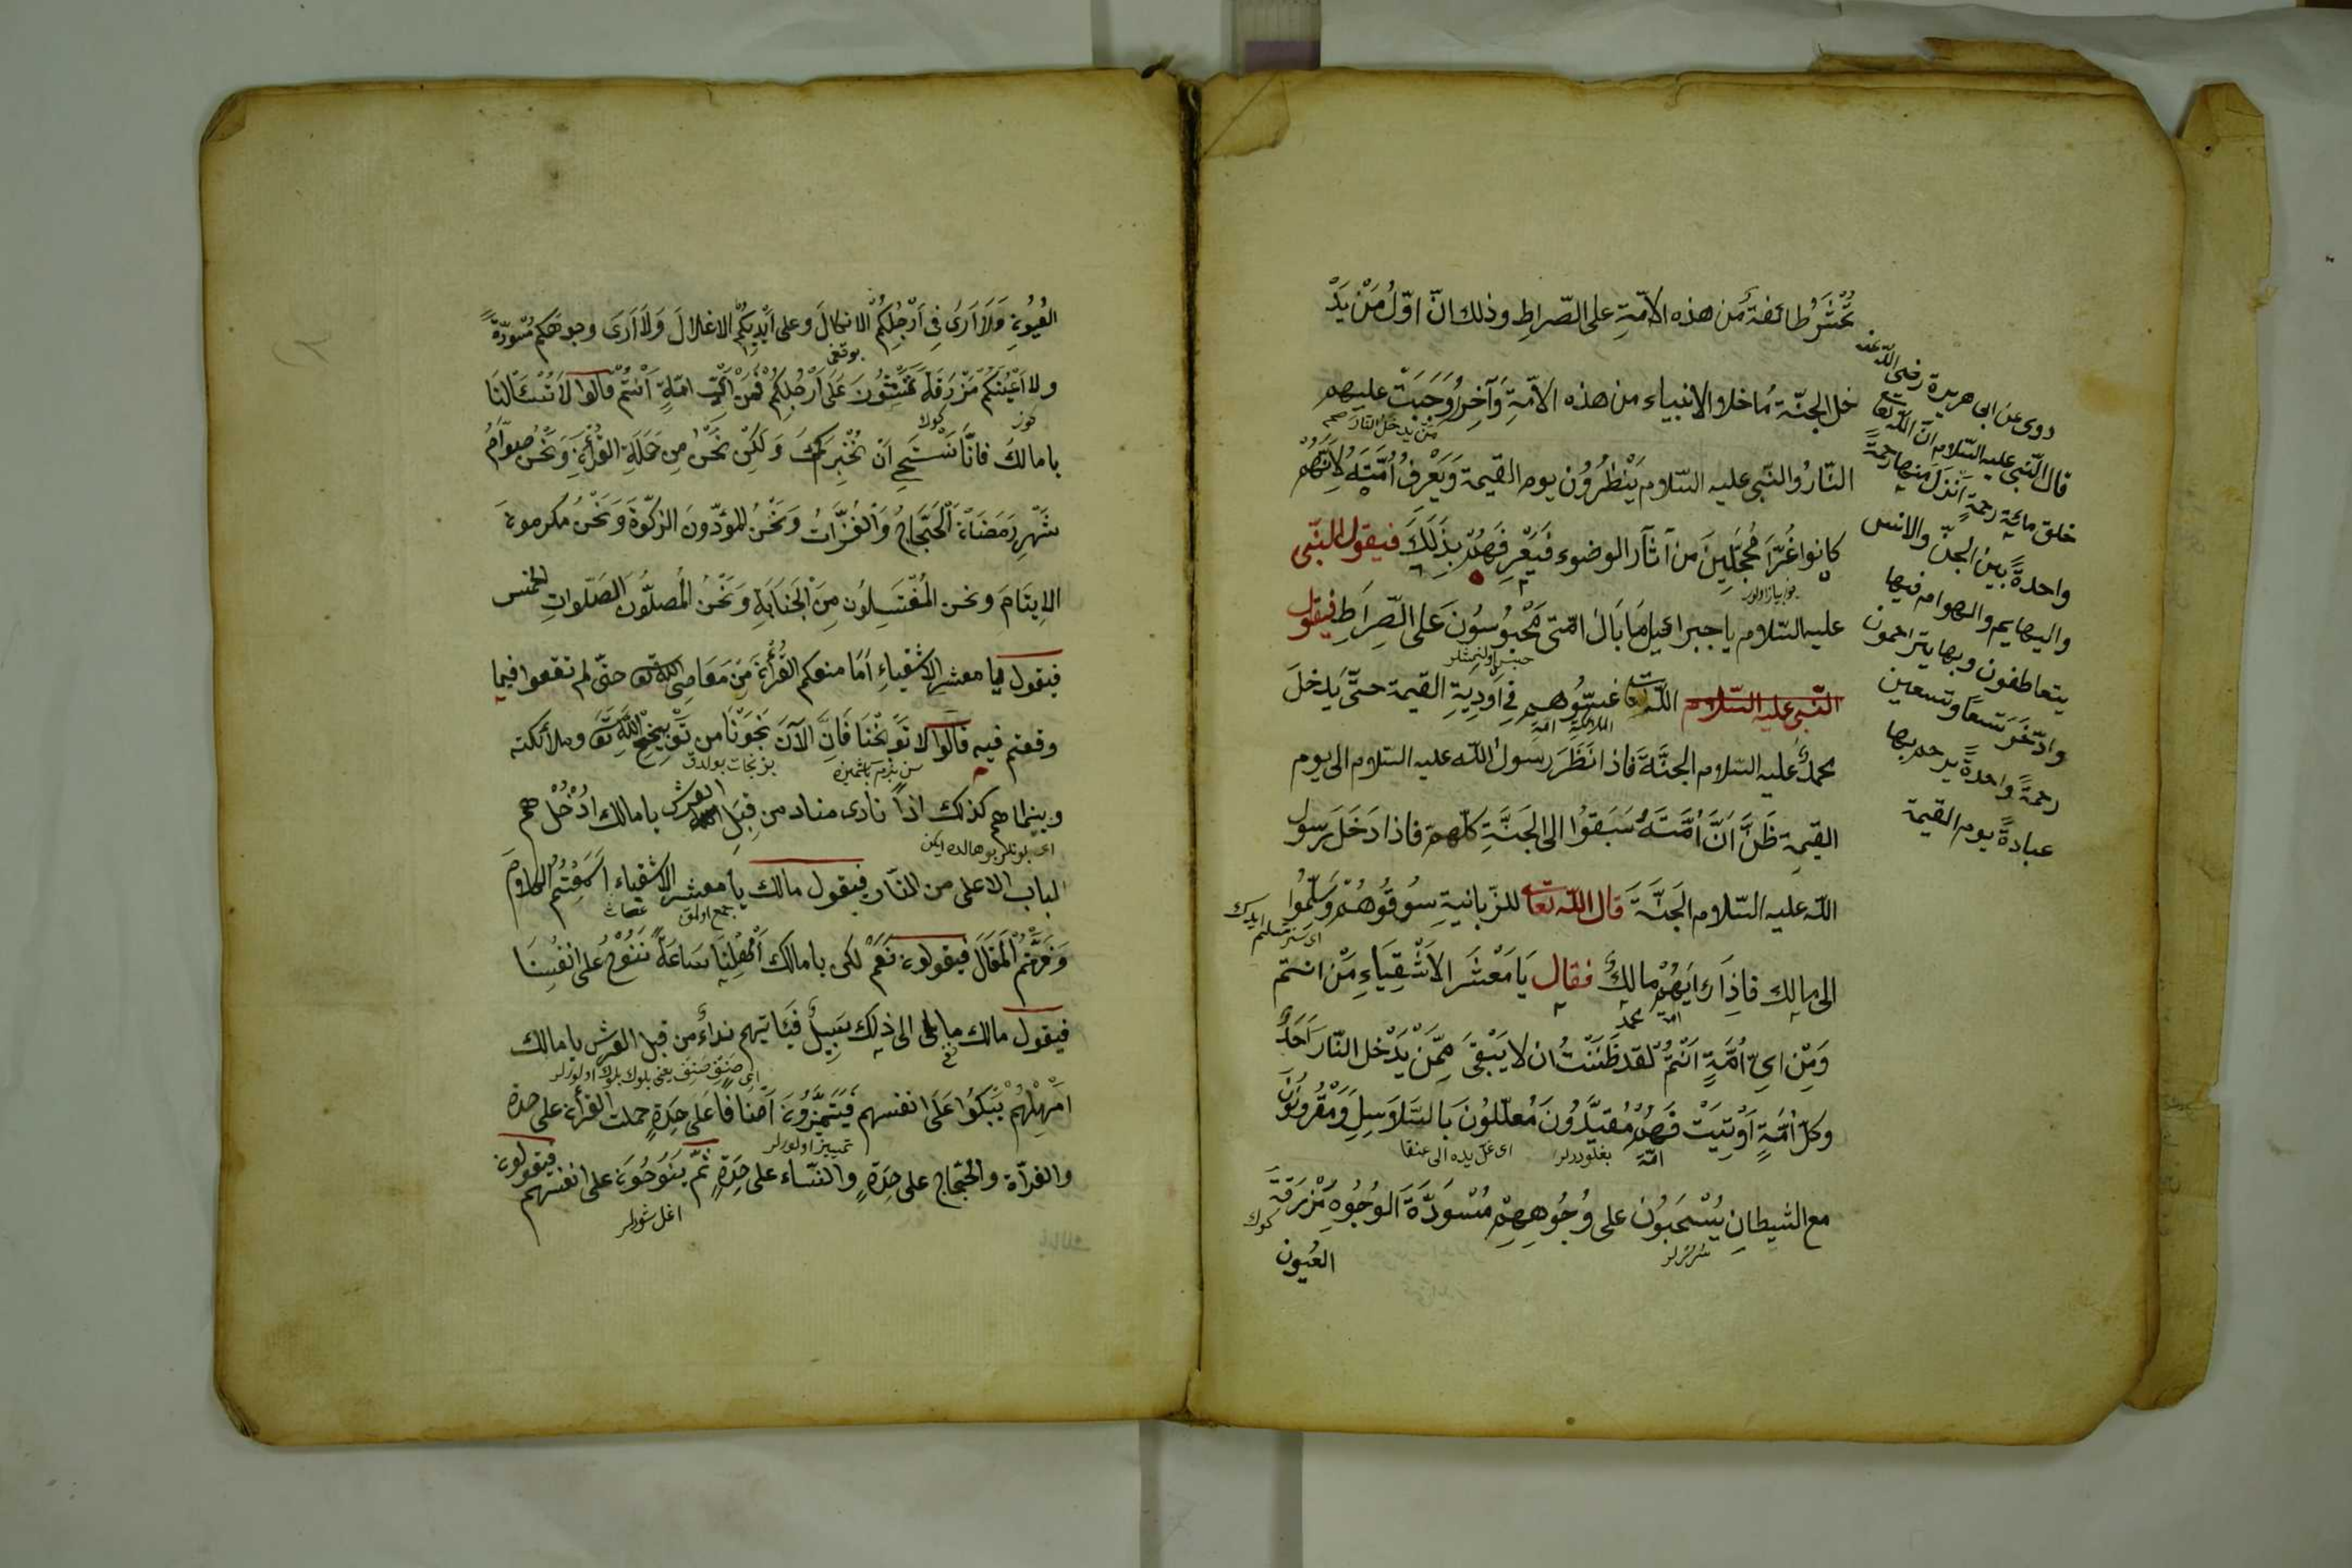 تُحْشَرُ طائفة من هذه الامّةِ على الصّراطِ وذلك انّ اوّلُ مَنْ يَدْ
خل الجنّة مُاخلا والانبياء من هذه الامّةِ وَآخِرُ وَجَبَتْ عليهم
من يدخل النار صح
النّارُ والنّبى عليه السّلام يَنْظُرُونَ يوم القيمة وَيَعْرِفُ اُمَّتَهُ لِاَنَّهُم
كانوا غُرًّا مُحَجَّلِينَ من آثار الوضوء فَيَعْرِفَهُمْ بِذَلِكَ فيقول النّبى
عليه السّلام يا جبرائيل مَا بَالُ امّتى مَحْبُوسُونَ عَلَى الصِّرَاطِ فيقول
حبس اولنمشلر
النّبى عليه السّلام اللّه تعا غيبّوهم فِى اَودِيَةِ القيمة حتَّى يَدخلَ
الملائكة امة
محمّدٌ عليه السّلام الجنَّةَ فاذا نَظَرَ رسول اللّه عليه السّلام الى يوم
القيمة ظَنَّ اَنَّ اُمَّتَهُ سَبَقُوا الى الجَنَّةِ كلّهم فاذا دَخَلَ رسول
اللّه عليه السّلام الجَنَّةَ قال اللّه تعا للزّبانيةِ سُوقُوهُمْ وَسَلِّمُوا
الى مالِك فاذَا رَايَهُمْ مالِكٌ فقال يَا مَعْشَرَ الاَشْقِيَاءِ مَنْ انتم
امة محمد
وَمِنْ اىِّ اُمَّةٍ اَنْتُمْ لقد ظَنَنْتُ ان لا يَبْقَى مِمَّن يَدْخل النّار اَحَدٌ
وكلّ اُمَّةٍ اُوتِيَتْ فَهُمْ مُقَيَّدُونَ مُعلّلونَ بَالسَّلَاسِلِ وَمَقْرُونُونَ
امّة بغلودرلر اى غلّ يده الى عنقا
مع الشيطانِ يُسْحَبُونَ على وُجُوهِهِمْ مُسْوَدَّةَ الوُجُوهِ مْزْرَقَّةَ
كوك
العُيون
روى عن ابى هريرة رضى اللّه عنه
قال النّبى عليه السّلام انّ اللّه تعا
خلق مائة رحمةٍ اَنْزَلَ منها رحمةً
واحدةً بين الجنّ والانس
والبهايم والهوام فيها
يتعاطفون وبها يتراحمون
وادّخَرَ تسعاً وتسعين
رحمةً واحدةً يرحم بها
عبادةً يوم القيمة
العُيُونِ وَلَا اَرَى فِى اَرْجُلِكُمُ الانكالَ وعلى اَيْدِيكُمُ الاغلالَ وَلَا اَرَى وجوهَكم مُسْوَدَّةً
ولا اَعْيُنَكُمْ مْزْرَقَّةً تَمْشُونَ عَلَى اَرْجُلِكُمْ فَمِنْ اَىِّ امّةٍ اَنْتُمْ قالوا لا تَسْئَالْنَا
يا مالكُ فانَّا نَسْتَحِى اَنْ نُخْبِرَكَ وَلَكِنْ نَحْنُ مِن حَمَلَةِ القُرْأَنِ وَنَحْنُ صوّامُ
شَهْرِ رَمَضَانَ اَلْحَجَّاجُ وَالْغُزَّاتُ وَنَحْنُ المؤدّونَ الزكوةَ وَنَحْنُ مكرمون
الايتَامَ ونحن الْمُغْتَسِلُونَ مِنَ الْجَنَابَةِ وَنَحْنُ الْمُصلُّونَ اَلصَّلَواتِ الخمس
فيقول يا معشر الاشقياءِ اَمَا منعكم القُرْأَنُ مِنْ مَعَاصِى اللّه تعا حتّى لم تقعوا فيما
وقعتم فيه قالوا لا تُوَبِّخْنَا فَاِنَّ الآنَ نَجَوْنَا من تَوْبِيخِ اللّهِ تعا وملائكته
وبينما هم كذلك اذاً نادى مناد من قِبَلِ العرش يا مالك اَدْخُلْ هم
اى بونلر بو حالده ايكن
الباب الاعلى من النّار فيقول مالك يا معشر الاشقياء اَسَمِعْتُمُ الكلامَ
وَفَرَّقْتُمُ الْمَقَالَ فيقولون نَعَمْ لكن يا مالك اَمْهِلْنَا ساعةً نَنُوْحُ على انفُسِنَا
فيقول مالك ما لى الى ذلِك سَبِيلٌ فيَأتيهم نداءٌ من قبل العرشِ يا مالك
اى صنف صنف يعنى بلوك بلوك اولورلر
اَمْهِلْهُمْ يَبْكُوا عَلَى انفسهم فَيَتَمَيَّزُونَ اَصْنَافاً عَلَى حِدَةٍ حملت القرأن على حدة
تمييز اولورلر
والغزّاة والحُجّاج على حِدَةٍ والنّساء على حِدَةٍ ثمّ يَنُوحُونَ على انفسهم فيقولون
اغلشورلر